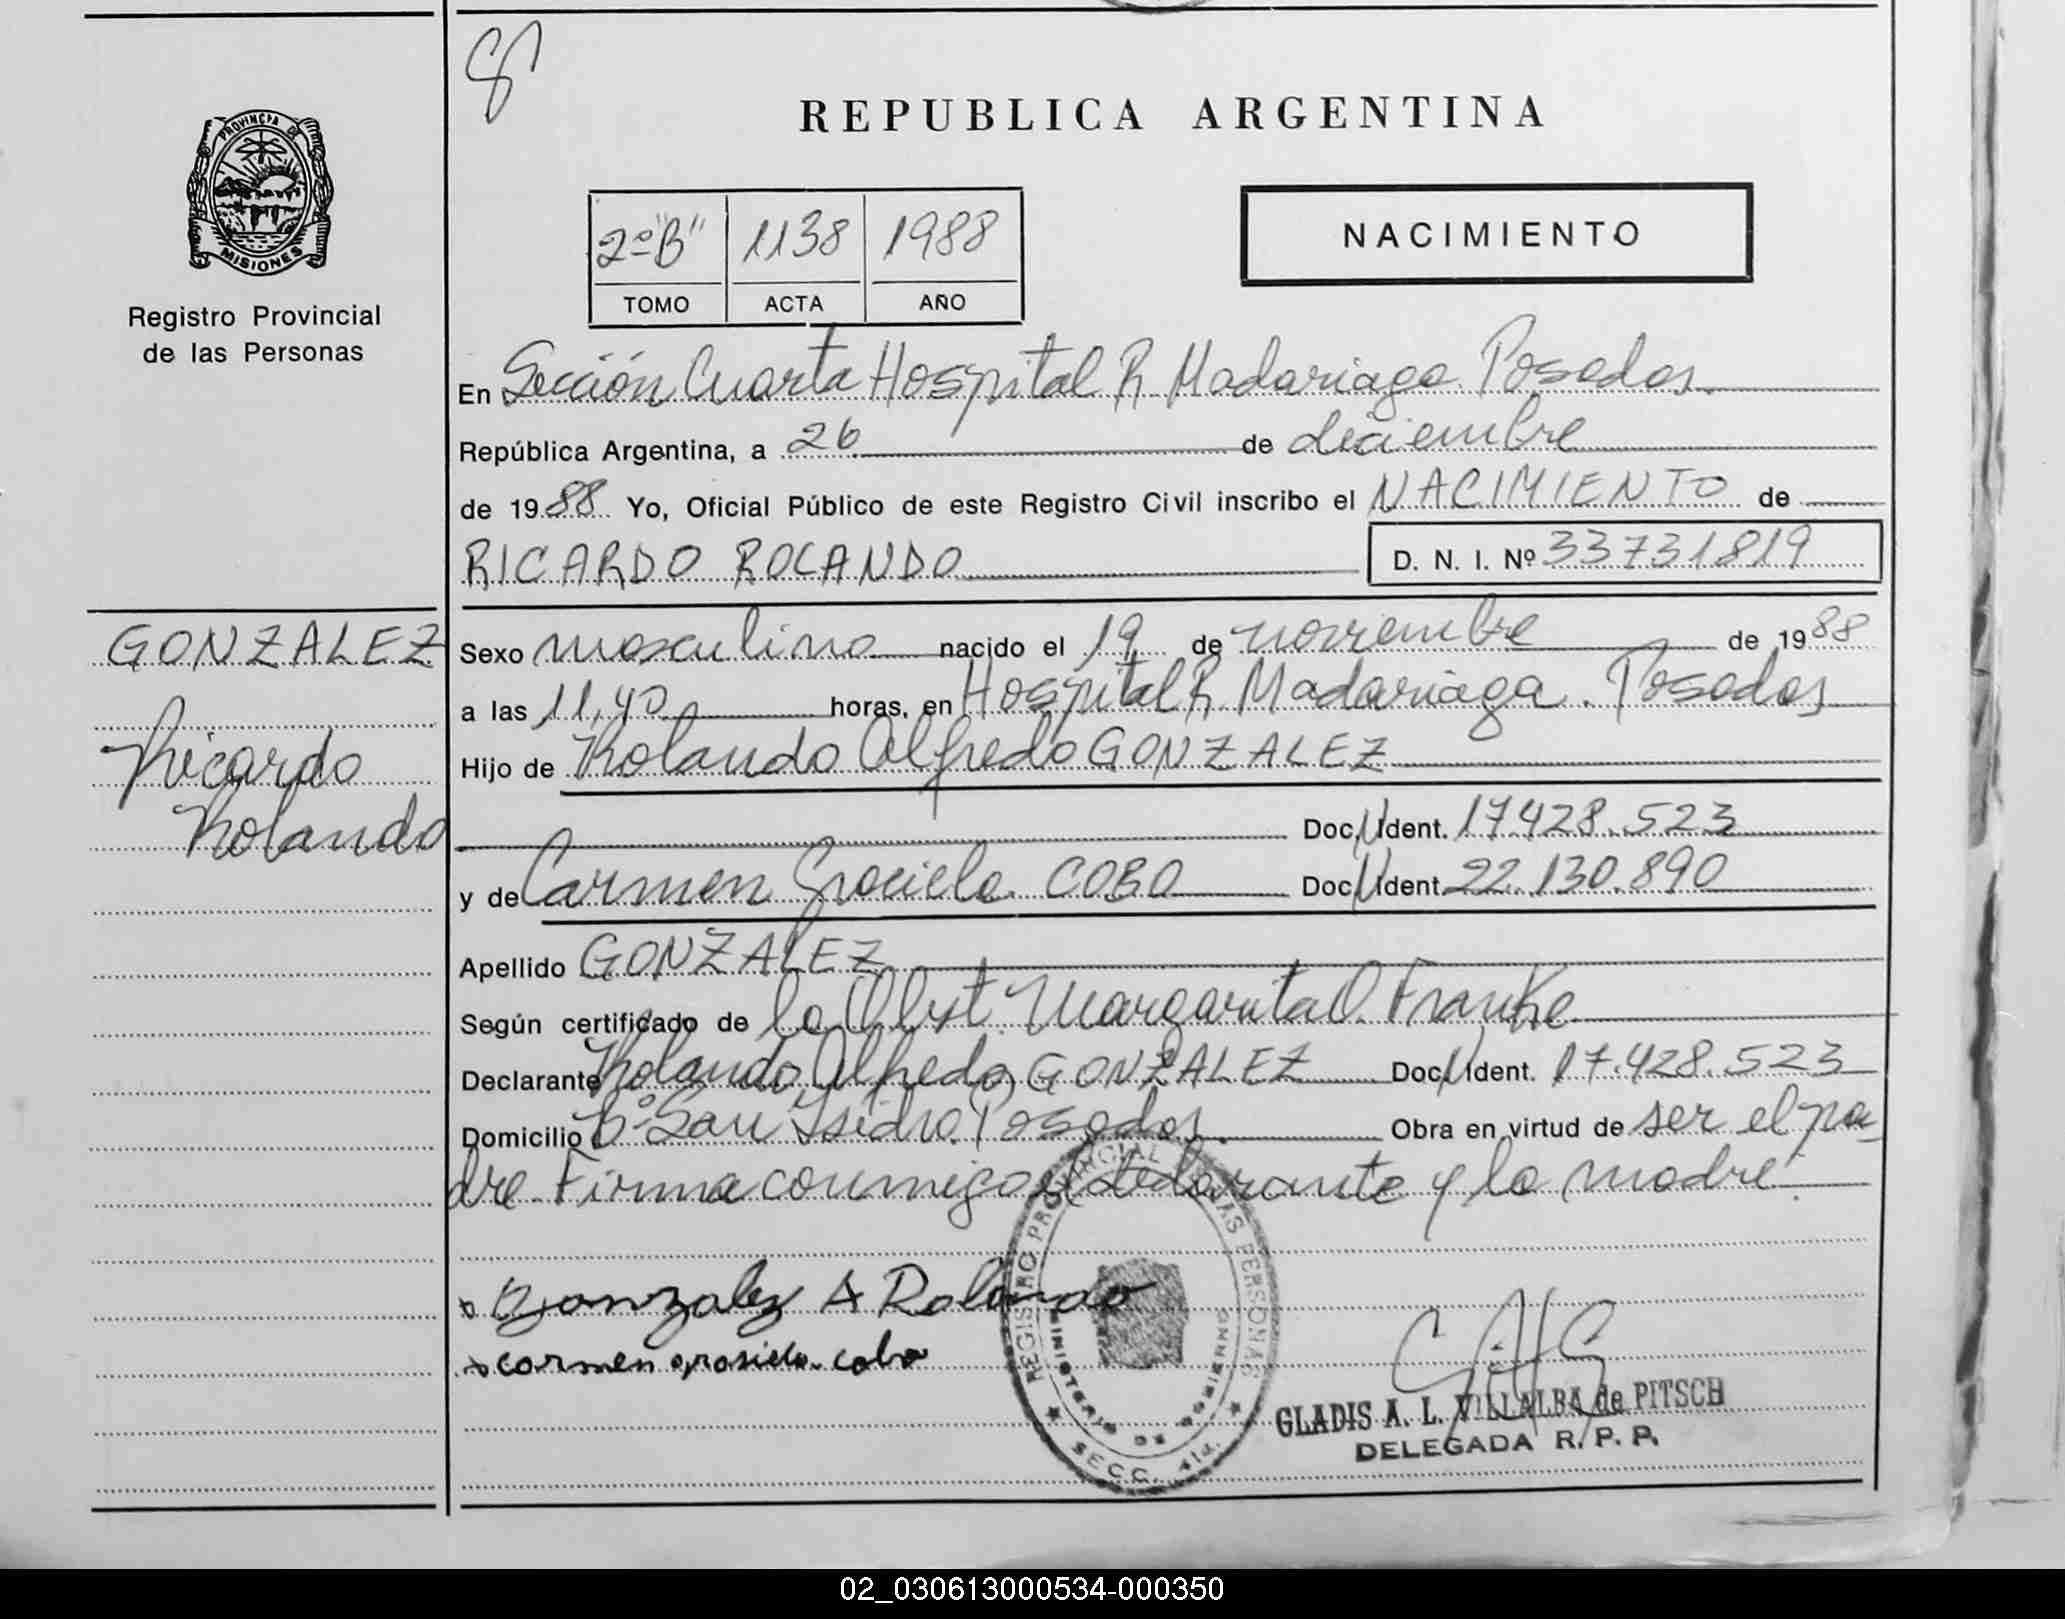 REPUBLICA ARGENTINA
PROVINCIA DE
MISIONES
Registro Provincial
de las Personas
2º "B" 1138 1988
TOMO ACTA AÑO
NACIMIENTO
En Sección Cuarta Hospital R. Madariaga. Posadas.
República Argentina, a 26 de diciembre
de 1988 Yo, Oficial Público de este Registro Civil inscribo el NACIMIENTO de
RICARDO ROLANDO D. N. I. Nº 33731819
GONZALEZ
Ricardo
Rolando
Sexo masculino nacido el 19 de noviembre de 1988
a las 11,40 horas, en Hospital R. Madariaga. Posadas
Hijo de Rolando Alfredo GONZALEZ
Doc. N Ident. 17.428.523
y de Carmen Graciela COBO Doc. N Ident. 22.130.890
Apellido GONZALEZ
Según certificado de la Obst. Margarita O. Franke
Declarante Rolando Alfredo GONZALEZ Doc. N Ident. 17.428.523
Domicilio Bº San Isidro. Posadas. Obra en virtud de ser el pa-
dre. Firma conmigo el declarante y la madre.
Gonzalez A Rolando
carmen grasiela cobo
REGISTRO PROVINCIAL DE LAS PERSONAS
MINISTERIO DE GOBIERNO
SECC. 4ta.
GLADIS A. L. VILLALBA de PITSCH
DELEGADA R. P. P.
02_030613000534-000350